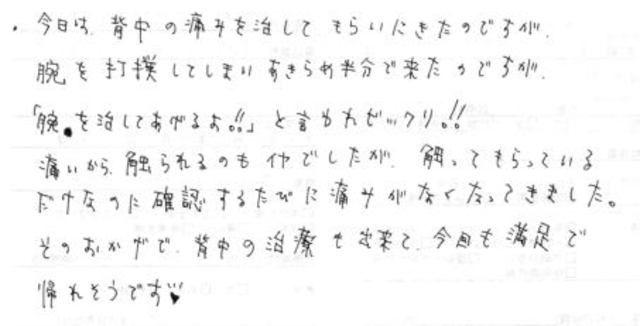 ・今日は、背中の痛みを治してもらいにきたのですが、
腕を打撲してしまいあきらめ半分で来たのですが、
「腕を治してあげるよ!!」と言われビックリ!!
痛いから、触られるのもイヤでしたが、触ってもらっている
だけなのに確認するたびに痛みがなくなってきました。
そのおかげで、背中の治療も出来て、今回も満足で
帰れそうです♥